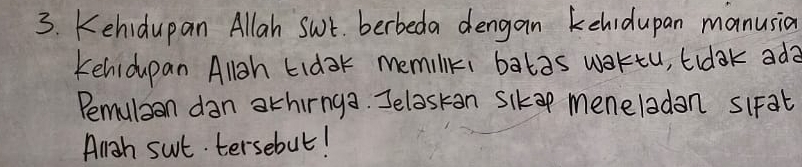 3. Kehidupan Allah swt. berbeda dengan kehidupan manusia
kehidupan Allah tidak memiliki batas waktu, tidak ada
Pemulaan dan akhirnya. Jelaskan sikap meneladan sifat
Allah swt. tersebut!